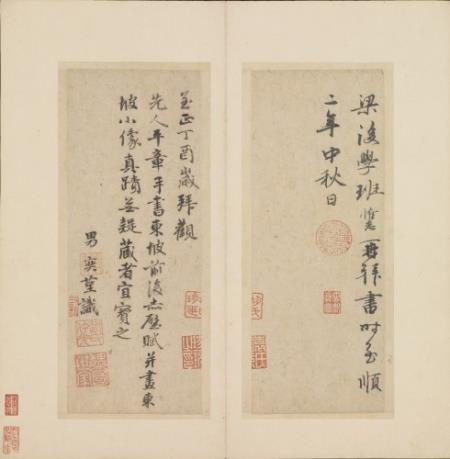 梁後學班惟志再拜書時至順
二年中秋日
至正丁酉歲拜觀
先人平章手書東坡前後赤壁賦并畫東
坡小像真蹟無疑藏者宜寶之
男奕堇識